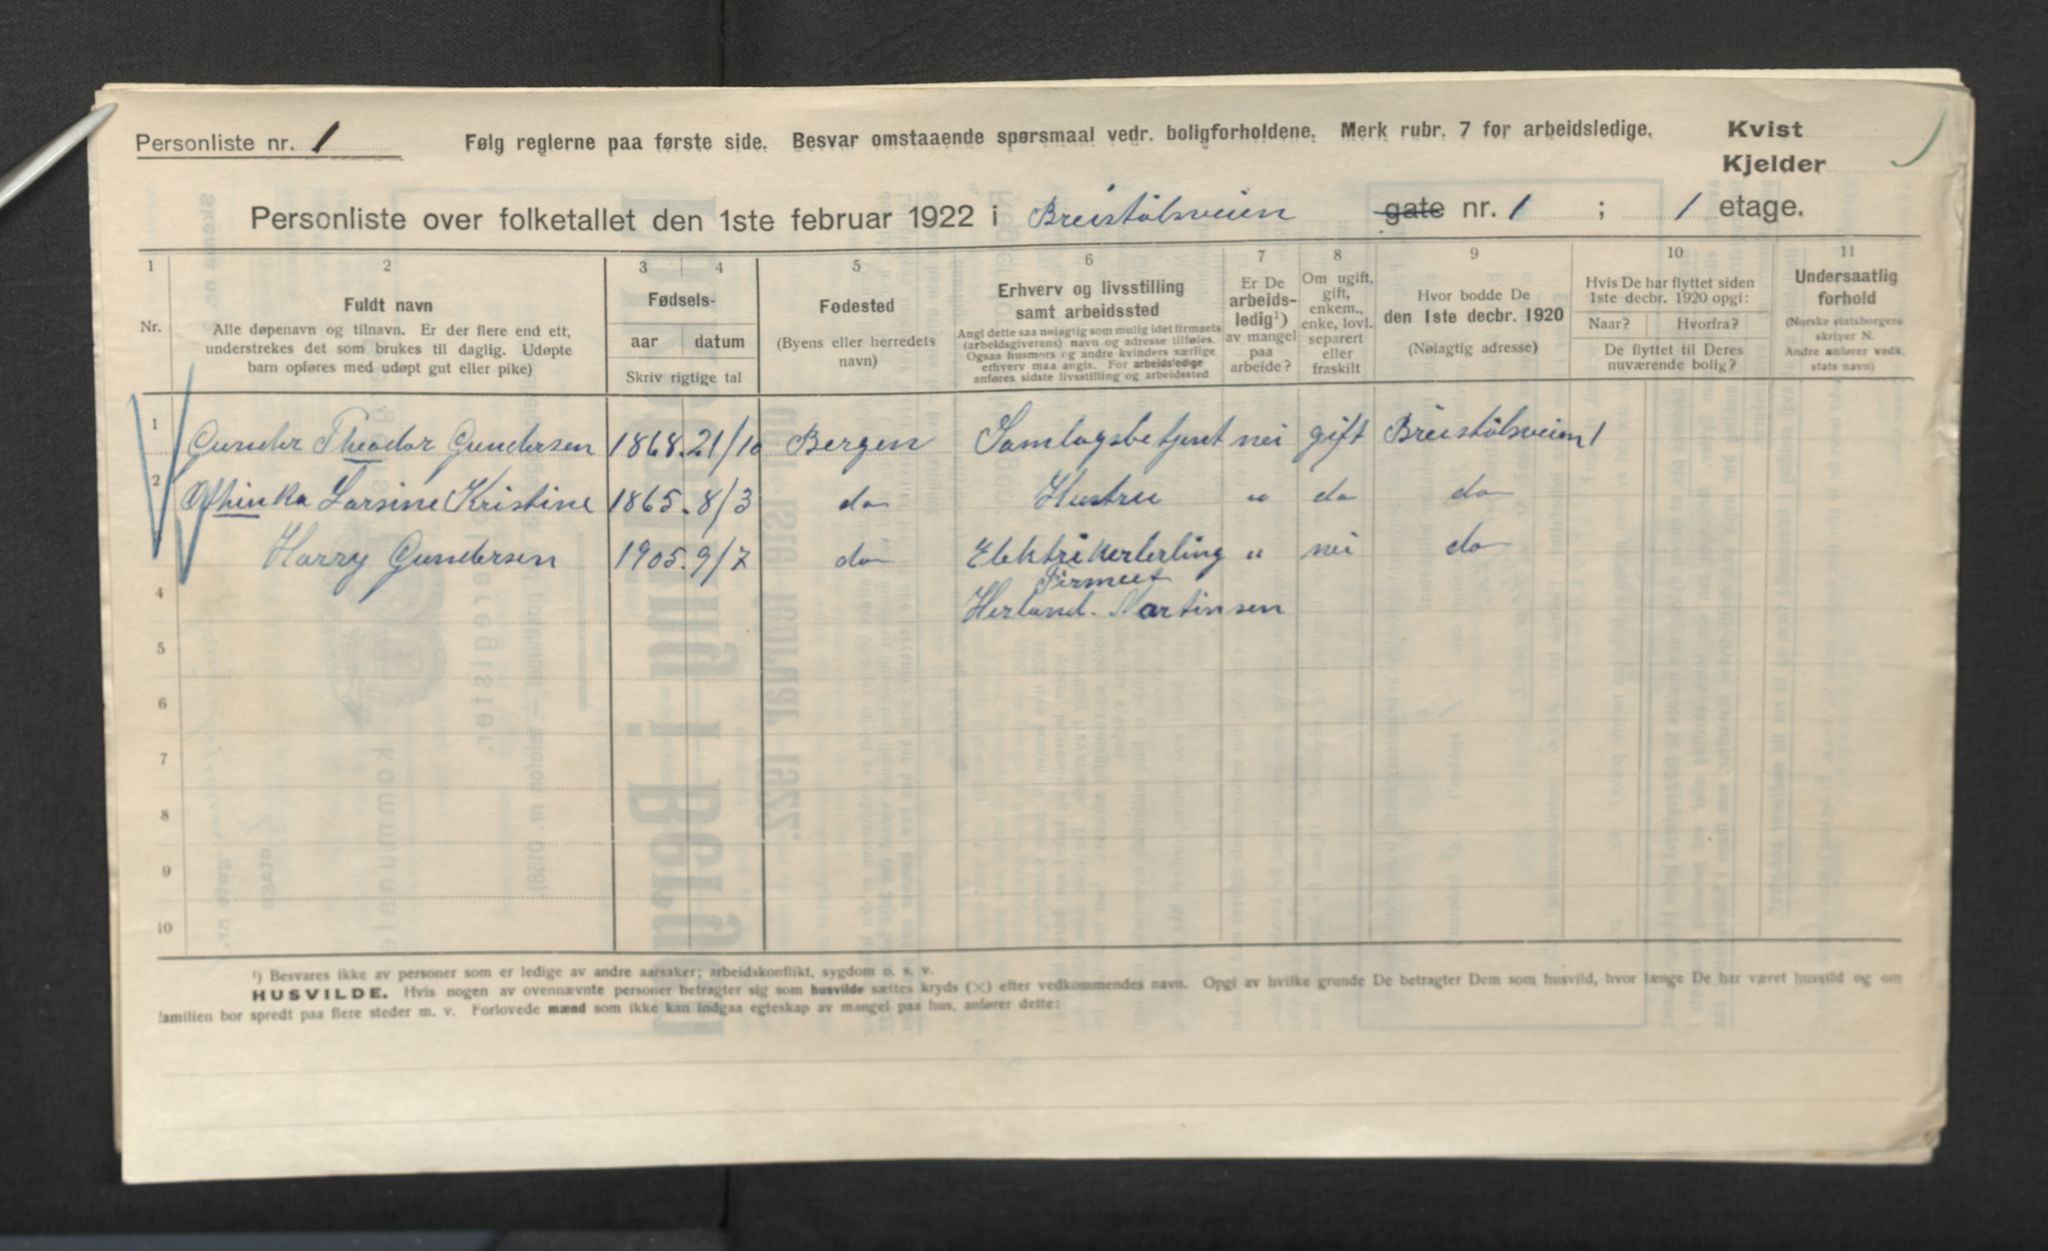 Personliste nr. 1
Følg reglerne paa første side. Besvar omstaaende spørsmaal vedr. boligforholdene. Merk rubr. 7 for arbeidsledige.
Kvist
Kjelder
Personliste over folketallet den 1ste februar 1922 i Breistølsveien gate nr. 1 ; 1 etage.
1 2 3 4 5 6 7 8 9 10 11
Nr.
Fuldt navn
Alle døpenavn og tilnavn. Er der flere end ett,
understrekes det som brukes til daglig. Udøpte
barn opføres med udøpt gut eller pike)
Fødsels-
aar datum
Skriv rigtige tal
Fødested
(Byens eller herredets
navn)
Erhverv og livsstilling
samt arbeidssted
Angi dette saa nøiagtig som mulig idet firmaets
(arbeidsgiverens) navn og adresse tilføies.
Ogsaa husmors og andre kvinders særlige
erhverv maa angis. For arbeidsledige
anføres sidste livsstilling og arbeidssted
Er De
arbeids-
ledig¹)
av mangel
paa
arbeide?
Om ugift,
gift,
enkem.,
enke, lovl.
separert
eller
fraskilt
Hvor bodde De
den 1ste decbr. 1920
(Nøiagtig adresse)
Hvis De har flyttet siden
1ste decbr. 1920 opgi:
Naar? Hvorfra?
De flyttet til Deres
nuværende bolig?
Undersaatlig
forhold
(Norske statsborgere
skriver N.
Andre anfører vedk.
stats navn)
1 Gunder Theodor Gundersen 1868. 21/10 Bergen Samlagsbetjent nei gift Breistølsveien 1
2 Othinka Larsine Kristine 1865. 8/3 do Hustru " do do
Harry Gundersen 1905. 9/7 do Elektrikerlerling " nei do
Firmaet
4 Herland. Martinsen
5
6
7
8
9
10
¹) Besvares ikke av personer som er ledige av andre aarsaker; arbeidskonflikt, sygdom o. s. v.
HUSVILDE. Hvis nogen av ovennævnte personer betragter sig som husvilde sættes kryds (×) efter vedkommendes navn. Opgi av hvilke grunde De betragter Dem som husvild, hvor længe De har været husvild og om
familien bor spredt paa flere steder m. v. Forlovede mænd som ikke kan indgaa egteskap av mangel paa hus, anfører dette: